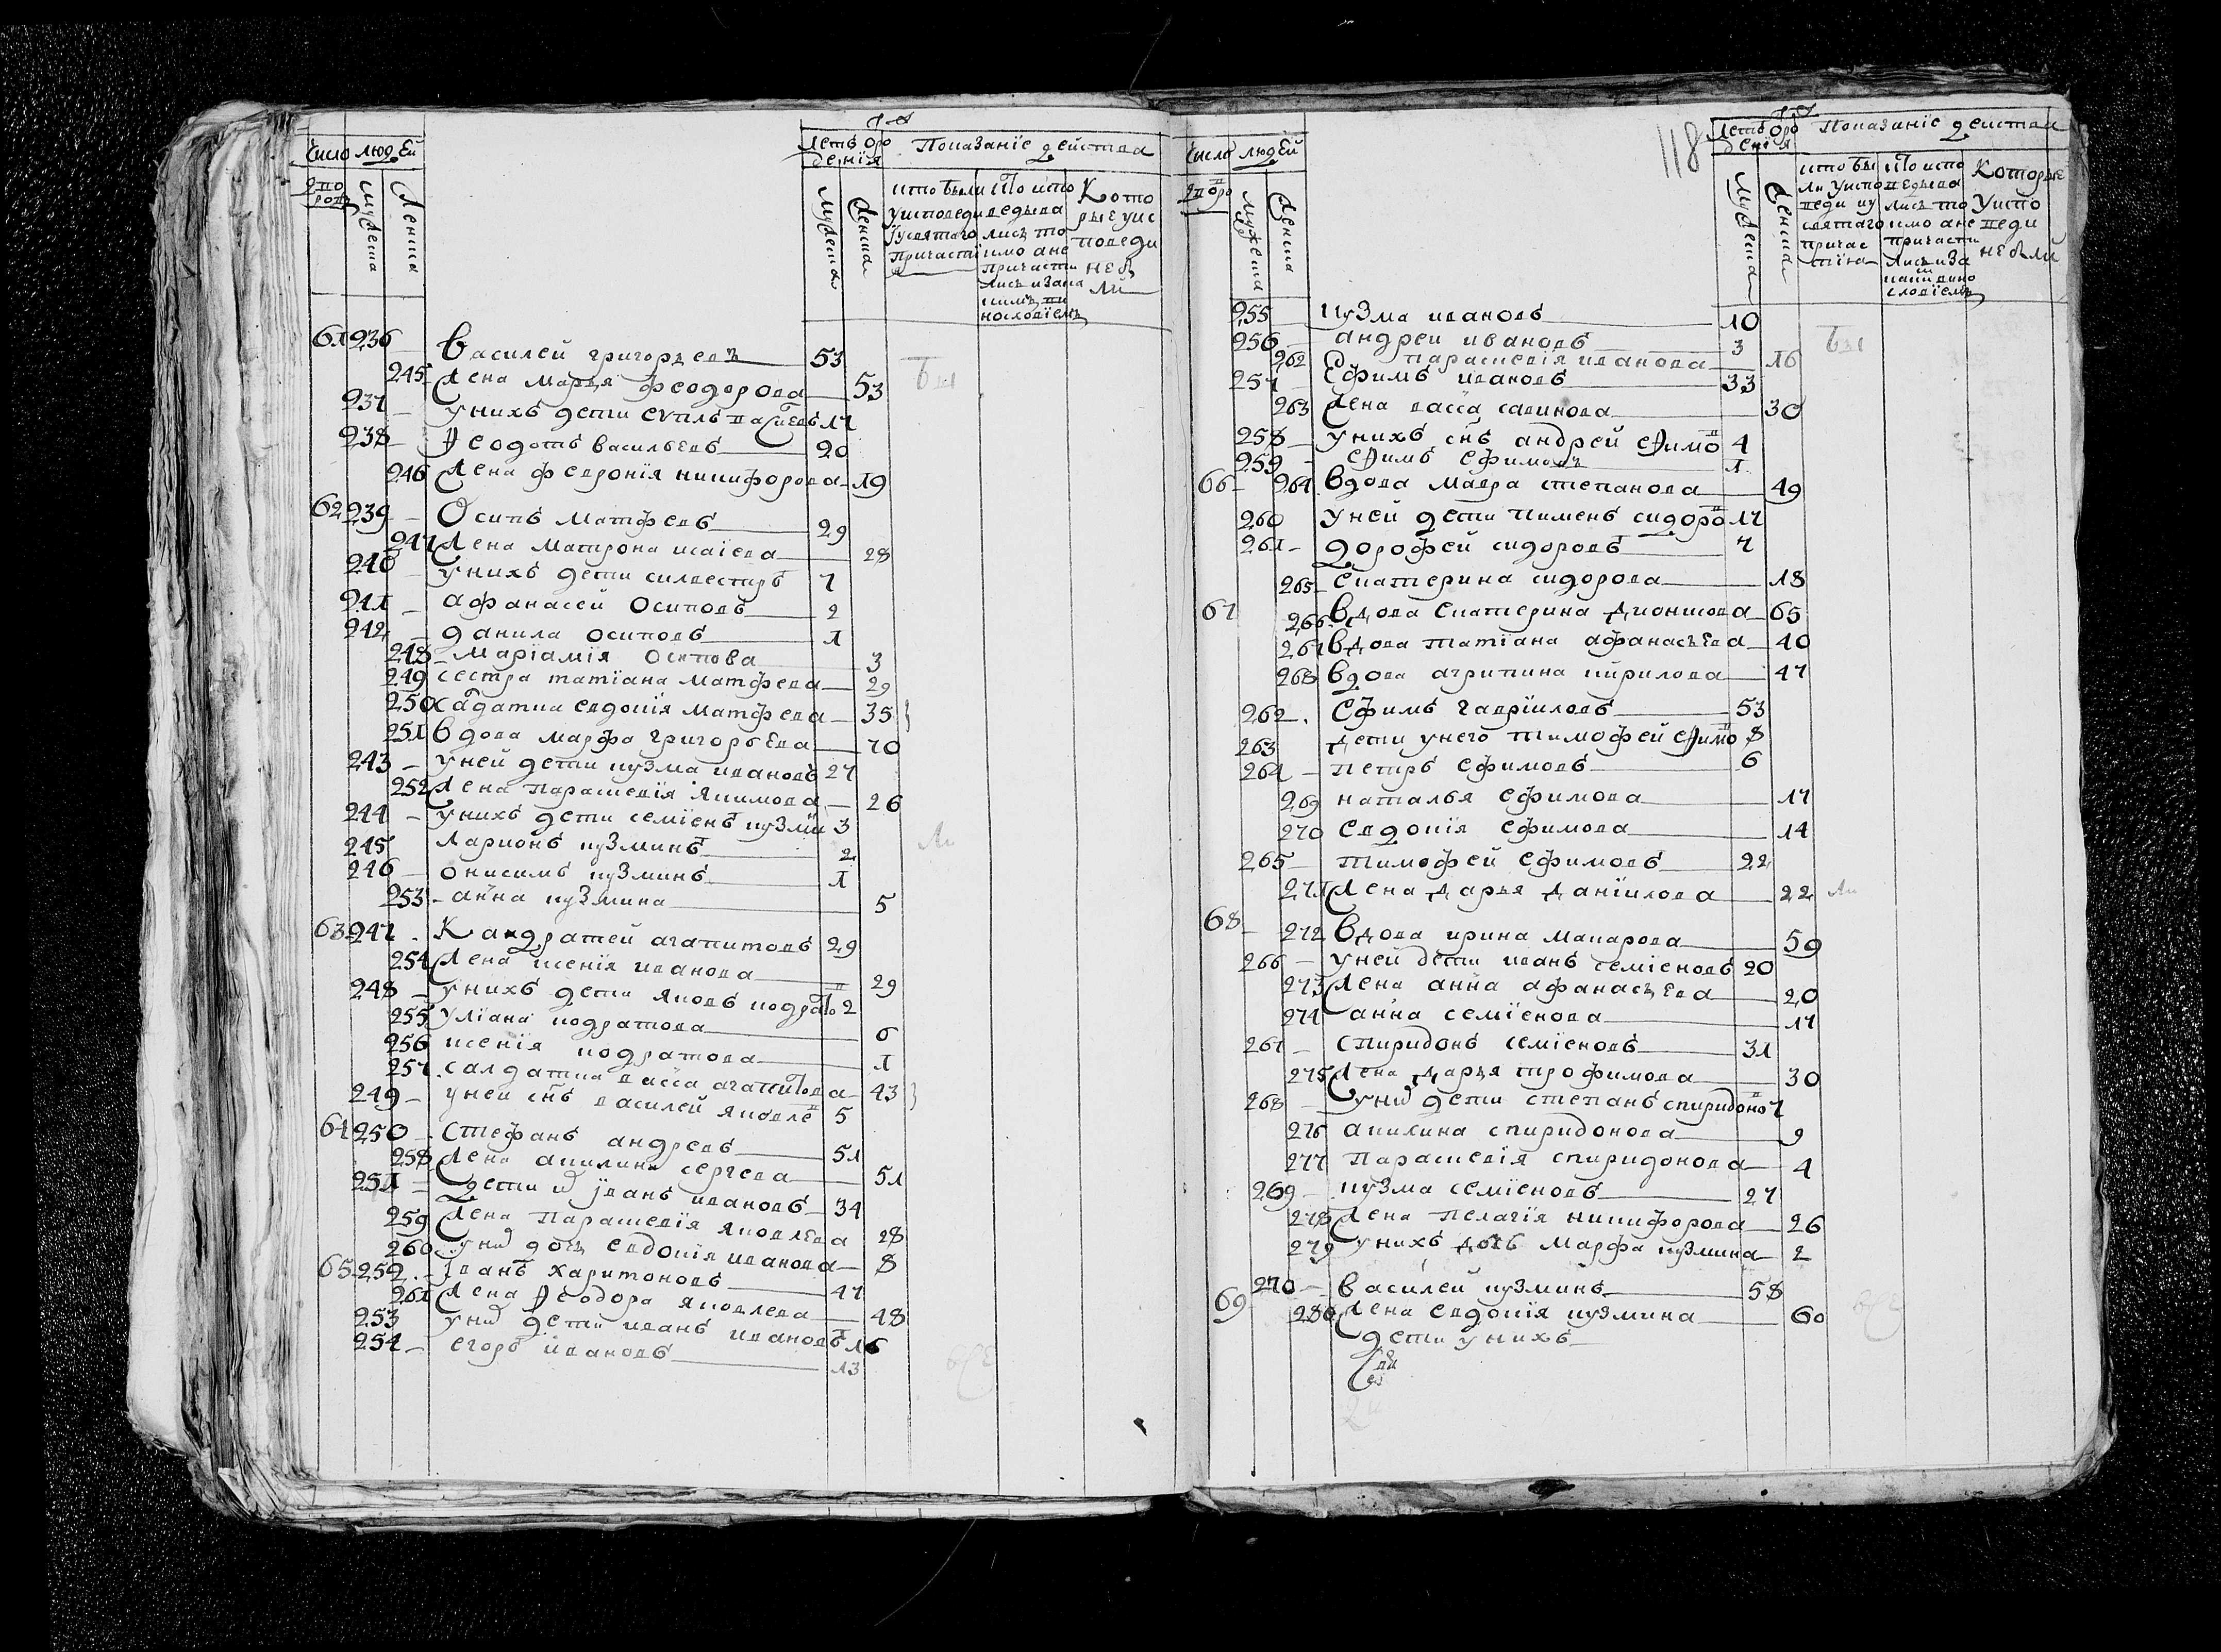 Число людей
Летъ отро
дения
Показание действа
Мужеска
Женска
Мужеска
Женска
61 236 Василей григорьевъ 53
245 Жена Марья феодорова 53
237 у нихъ дети
238 Феодотъ васильевъ 20
246 Жена февронїя никифорова 19
62 239 Осипъ Матфеевъ 29
247 Жена Матрона исаїева 28
240 у нихъ дети силвестръ 7
241 афанасей Осиповъ 2
242 данила осиповъ 1
248 Марїамїя Осипова 3
249 сестра татїана Матфеева 29
250 салдатка евдокїя матфеева 35
251 вдова марфа григорьева 70
243 у ней дети кузма ивановъ 27
252 Жена Параскевїя Якимова 26
244 у нихъ дети семїенъ кузмин 3
245 Ларионъ кузминъ 2
246 онисимъ кузминъ 1
253 анна кузмина 5
63 247 Кандратей агапитовъ 29
254 Жена ксенїя иванова 29
248 у нихъ дети яковъ кодрато 2
255 улїана кодратова 6
256 ксенїя кодратова 1
257 салдатка васса агапитова 43
249 у ней снъ василей яковле 5
64 250 Стефанъ андреевъ 51
258 Жена акилина сергеева 51
251 дети их Їванъ ивановъ 34
259 Жена Параскевїя яковлева 28
260 у них дочь евдокїя иванова 8
65 252 Їванъ харитоновъ 47
261 Жена Феодора яковлева 48
253 у них дети иванъ ивановъ 16
254 егоръ ивановъ 13
118
Число людей
Летъ отро
дения
Показанїе действа
Мужеска
Женска
Мужеска
Женска
255 кузма ивановъ 10
256 андреи ивановъ 3
262 параскевїя иванова 16
257 Ефимъ ивановъ 33
263 Жена васса савинова 30
258 у нихъ снъ андрей ефимо 4
259 ефимъ ефимовъ 1
66 264 вдова мавра степанова 49
260 у ней дети пименъ сидоро 17
261 дорофей сидоровъ 7
265 екатерина сидорова 18
67 266 вдова екатерина дионисова 65
267 вдова татїана афанасьева 40
268 вдова агрипина кирилова 47
262 Ефимъ гаврїиловъ 53
263 дети у него тимофей ефимо 8
264 петръ ефимовъ 6
269 наталья ефимова 17
270 евдокїя ефимова 14
265 тимофей ефимовъ 22
271 Жена дарья данїилова 22
68 272 вдова ирина макарова 59
266 у ней дети иванъ семїеновъ 20
273 Жена анна афанасьева 20
274 анна семїенова 17
267 спиридонъ семїеновъ 31
275 Жена дарья трофимова 30
268 у них дети степанъ спиридоно 7
276 акилина спиридонова 9
277 Параскевїя спиридонова 4
269 кузма семїеновъ 27
278 Жена пелагїя никифорова 26
279 у нихъ дочь марфа кузмина 2
69 270 василей кузминъ 58
280 Жена евдокїя кузмина 60
дети у нихъ